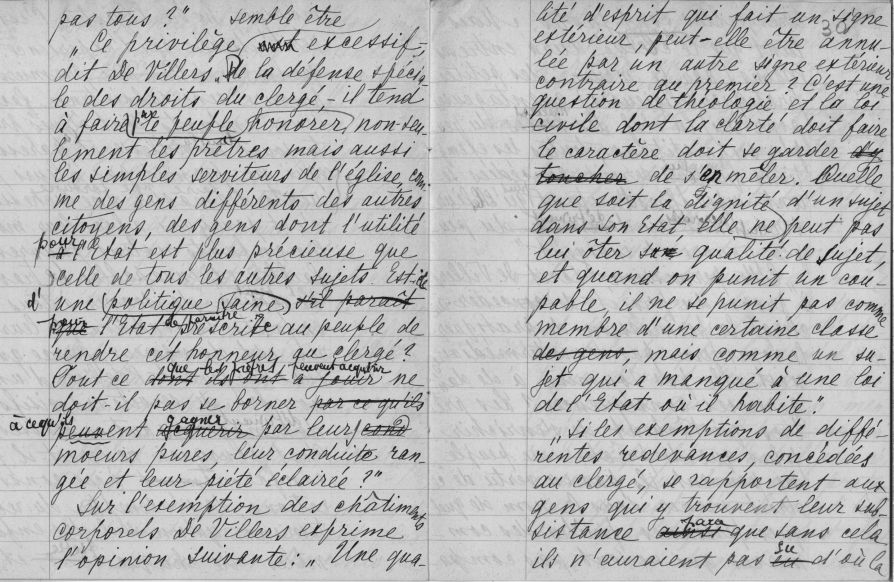 pas tous?" semble être
„Ce privilège excessif,-
dit De Villers, De la défense spécia-
le des droits du clergé - il tend
à faire par le peuple honorer, non-seu-
lement les prêtres mais aussi
les simples serviteurs de l'église, com-
me des gens différents des autres
citoyens, des gens dont l'utilité
pour
à l'Etat est plus précieuse que
celle de tous les autres sujets. Est-ce
une politique saine s'il parait
d'
pour
que l'Etat prescrire au peuple de
rendre cet honneur au clergé?
que les prêtres peuvent acquérir
Tout ce dont ils ont à jouir ne
doit-il pas se borner par ce qu'ils
à ce qu'ils gagner
peuvent acquérir par leurs cond
moeurs pures, leur conduite ran-
gée et leur piété éclairée?"
Sur l'exemption des châtiments
corporels De Villers exprime
l'opinion suivante: „Une qua-
lité d'esprit qui fait un signe
extérieur, peut-elle être annu-
lée par un autre signe extérieur
contraire au premier? C'est une
question de théologie et la loi
civile dont la clarté doit faire
le caractère doit se garder d'y
toucher de s'en mêler. Quelle
que soit la dignité d'un sujet
dans son Etat elle ne peut pas
lui ôter sa qualité de sujet,
et quand on punit un cou-
pable, il ne se punit pas comme
membre d'une certaine classe
des gens, mais comme un su-
jet qui a manqué à une loi
de l'Etat où il habite".
„Si les exemptions de diffé-
rentes redevances, concédées
au clergé, se rapportent aux
gens qui y trouvent leur sub-
sistance ainsi que sans cela
ils n'auraient pas su d'où la